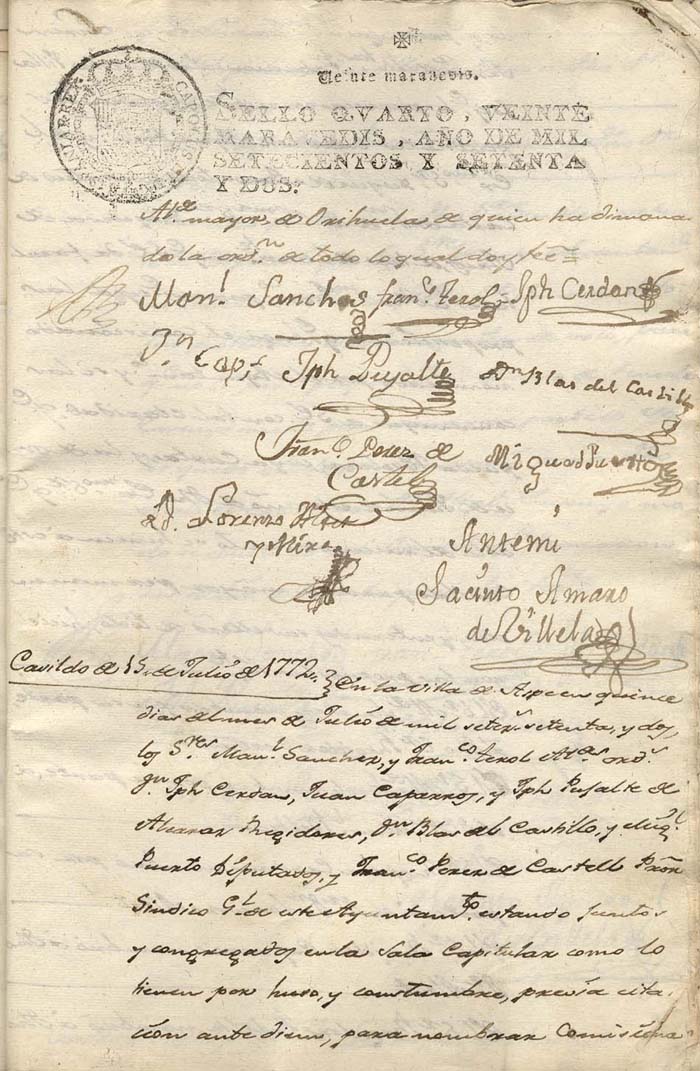 Veinte maravedis.
SELLO QVARTO, VEINTE
MARAVEDIS, AÑO DE MIL
SETECIENTOS Y SETENTA
Y DOS.
CAROLUS HISPANIAR REX
Alde. mayor, de Orihuela, de quien ha dimana
do la ordn. de todo lo qual doy fee=
Manl. Sanchez franco. Terol Jph Cerdan
Jn. Cap,s Jph Pujalte Dn Blas del Castillo
Franco. Perez de Miguel Puerto
Castell
D. Lorenzo
y Mira
Antemi
Jacinto Amaro
de Villela
Cavildo de 15, de Julio de 1772,, En la Villa de Aspe en quince
dias del mes de Julio de mil seter. setenta, y dos,
los Sres Manl. Sanchez, y Franco. Terol Aldes ordr.
Dn. Jph Cerdan, Juan Caparros, y Jph Pujalte de
Alcaraz Regidores, Dn. Blas del Castillo, y Migl.
Puerto Diputados, y Franco Perez de Castell Pror.
Sindico Gl. de este Ayuntamto, estando juntos
y congregados en la Sala Capitular como lo
tienen por huso, y costumbre, previa cita
cion ante diem, para nombrar Comisiona